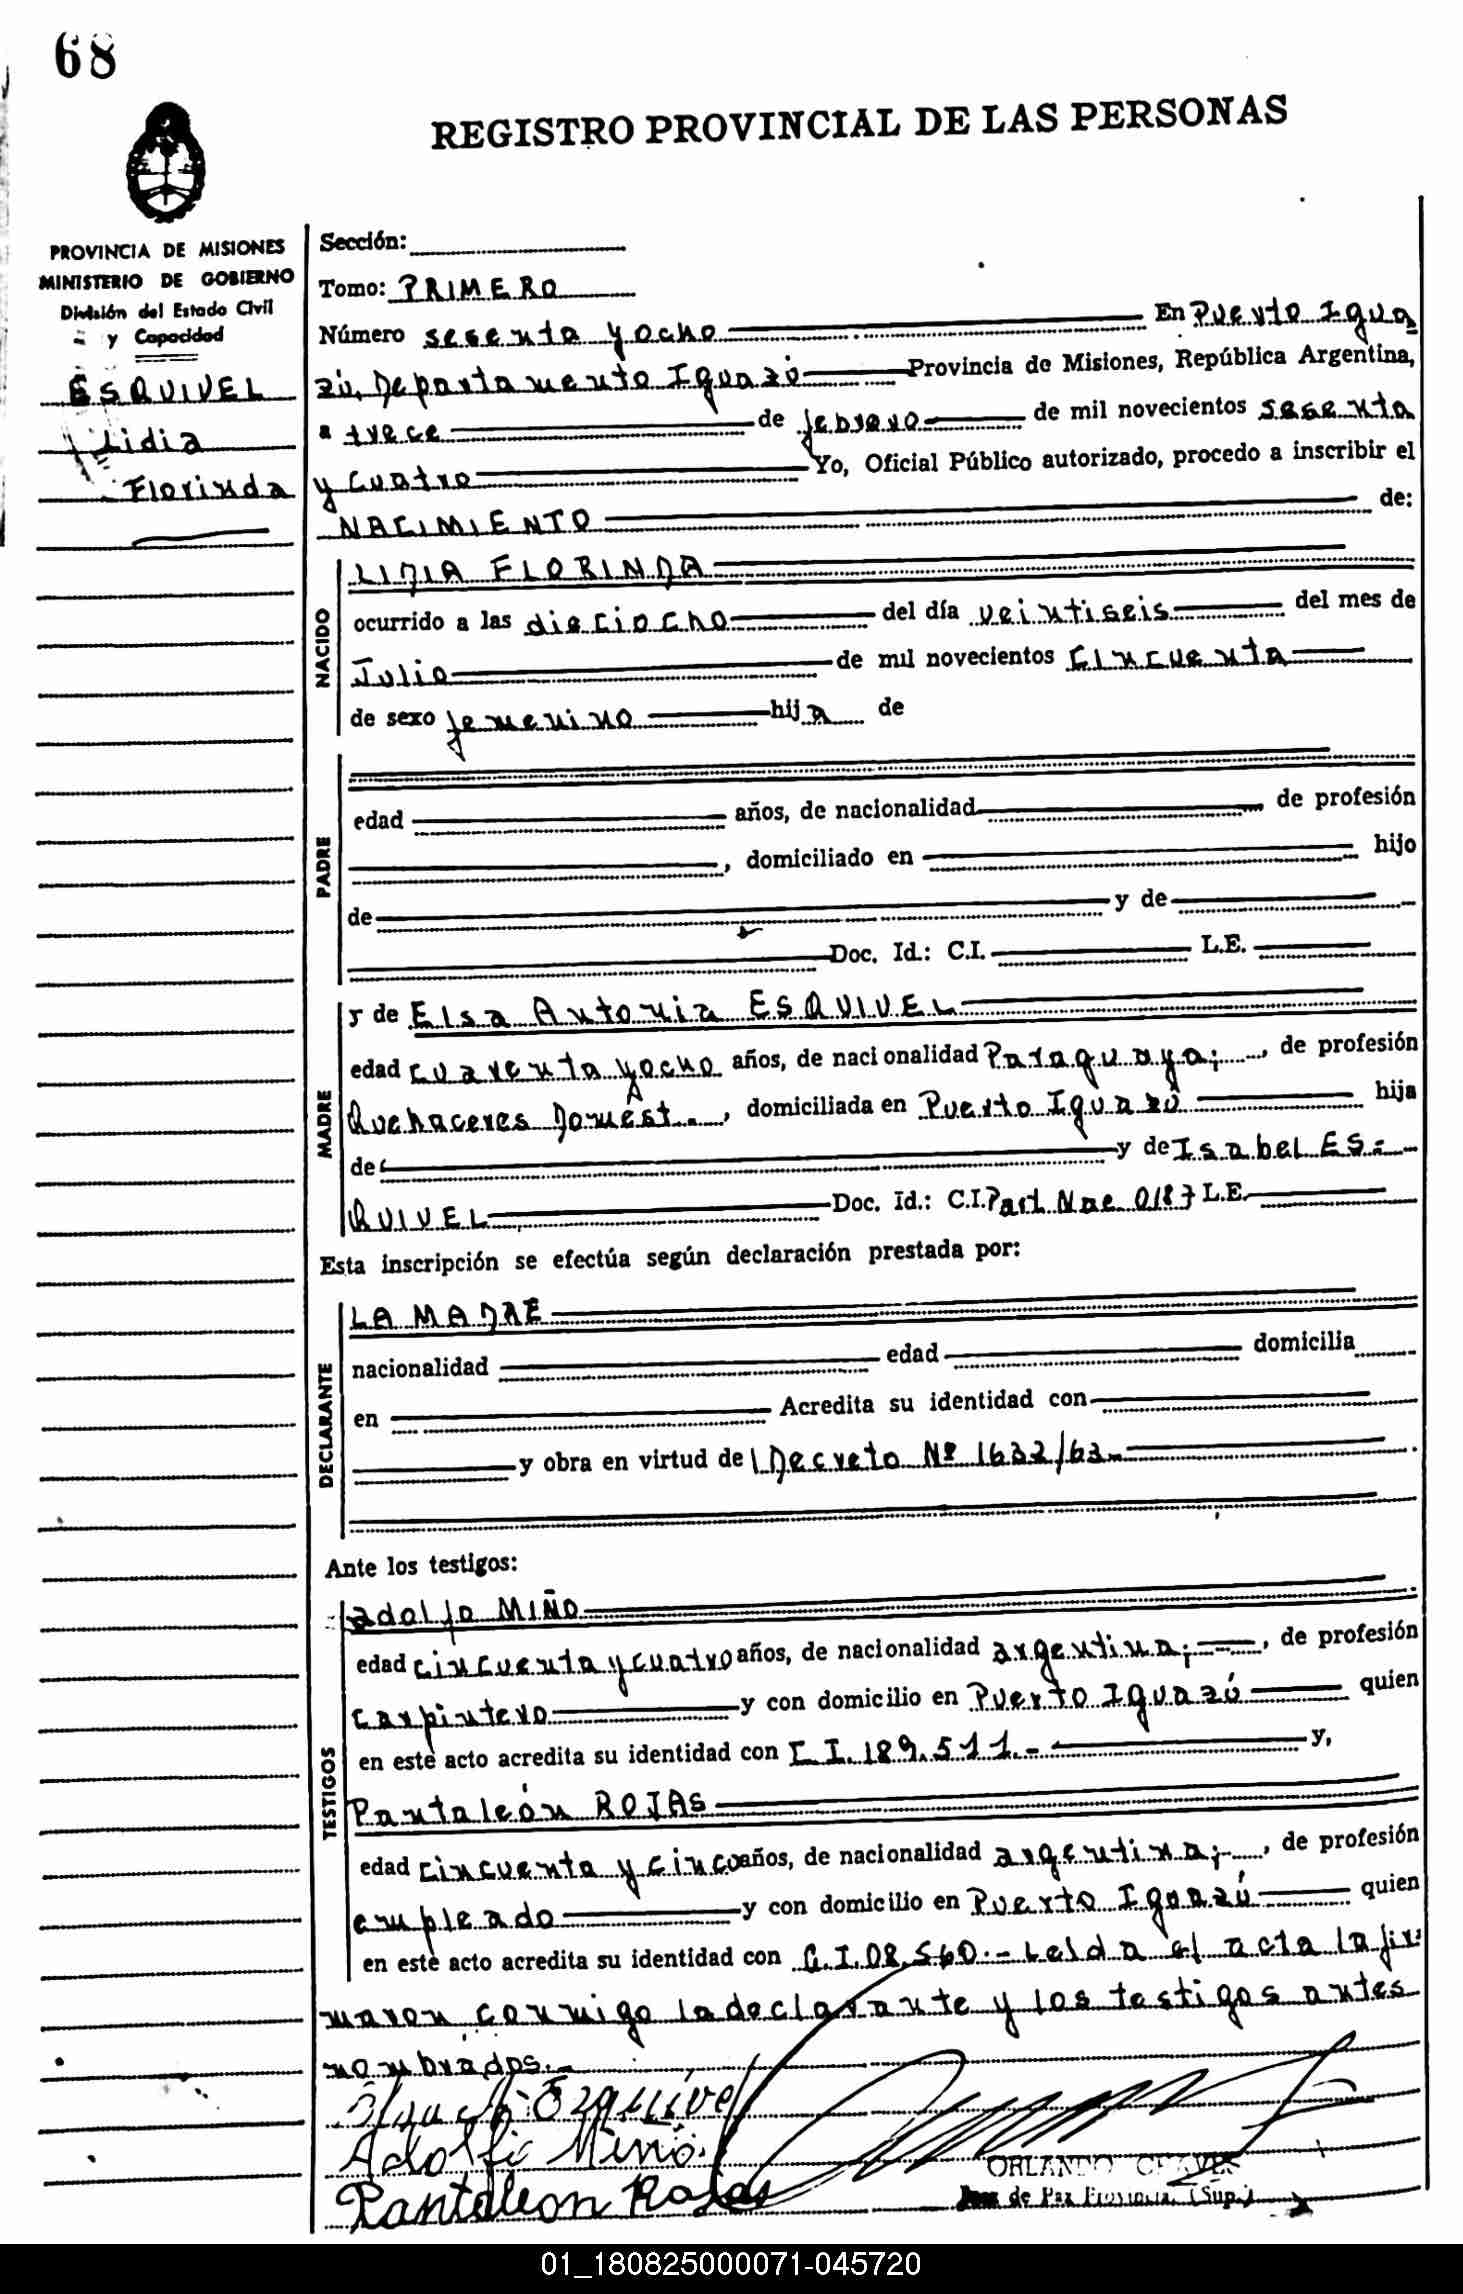 68
REGISTRO PROVINCIAL DE LAS PERSONAS
PROVINCIA DE MISIONES
MINISTERIO DE GOBIERNO
División del Estado Civil
y Capacidad
ESQUIVEL
Lidia
Florinda
Sección:
Tomo: PRIMERO
Número sesenta y ocho En Puerto Igua
zú, Departamento Iguazú Provincia de Misiones, República Argentina,
a trece de febrero de mil novecientos sesenta
y cuatro Yo, Oficial Público autorizado, procedo a inscribir el
NACIMIENTO de:
NACIDO
LIDIA FLORINDA
ocurrido a las dieciocho del día veintiseis del mes de
Julio de mil novecientos cincuenta
de sexo femenino hija de
PADRE
edad años, de nacionalidad de profesión
, domiciliado en hijo
de y de
Doc. Id.: C.I. L.E.
MADRE
y de Elsa Antonia ESQUIVEL
edad cuarenta y ocho años, de nacionalidad Paraguaya; , de profesión
Quehaceres Domést. , domiciliada en Puerto Iguazú hija
de y de Isabel ES=
QUIVEL Doc. Id.: C.I. Part. Nac 0187 L.E.
Esta inscripción se efectúa según declaración prestada por:
DECLARANTE
LA MADRE
nacionalidad edad domicilia
en Acredita su identidad con
y obra en virtud de Decreto Nº 1632/63.-
Ante los testigos:
TESTIGOS
adolfo MIÑO
edad cincuenta y cuatro años, de nacionalidad argentina;- , de profesión
carpintero y con domicilio en Puerto Iguazú quien
en este acto acredita su identidad con C I. 189.511.- y,
Pantaleón ROJAS
edad cincuenta y cinco años, de nacionalidad argentina;- , de profesión
empleado y con domicilio en Puerto Iguazú quien
en este acto acredita su identidad con C.I.08.560.- Leída el acta la fir
maron conmigo la declarante y los testigos antes
nombrados.-
Elsa A. Ezquivel
Adolfo Mino.
Pantaleon Rojas
ORLANDO CHAVES
Juez de Paz Provincial (Sup.)
01_180825000071-045720